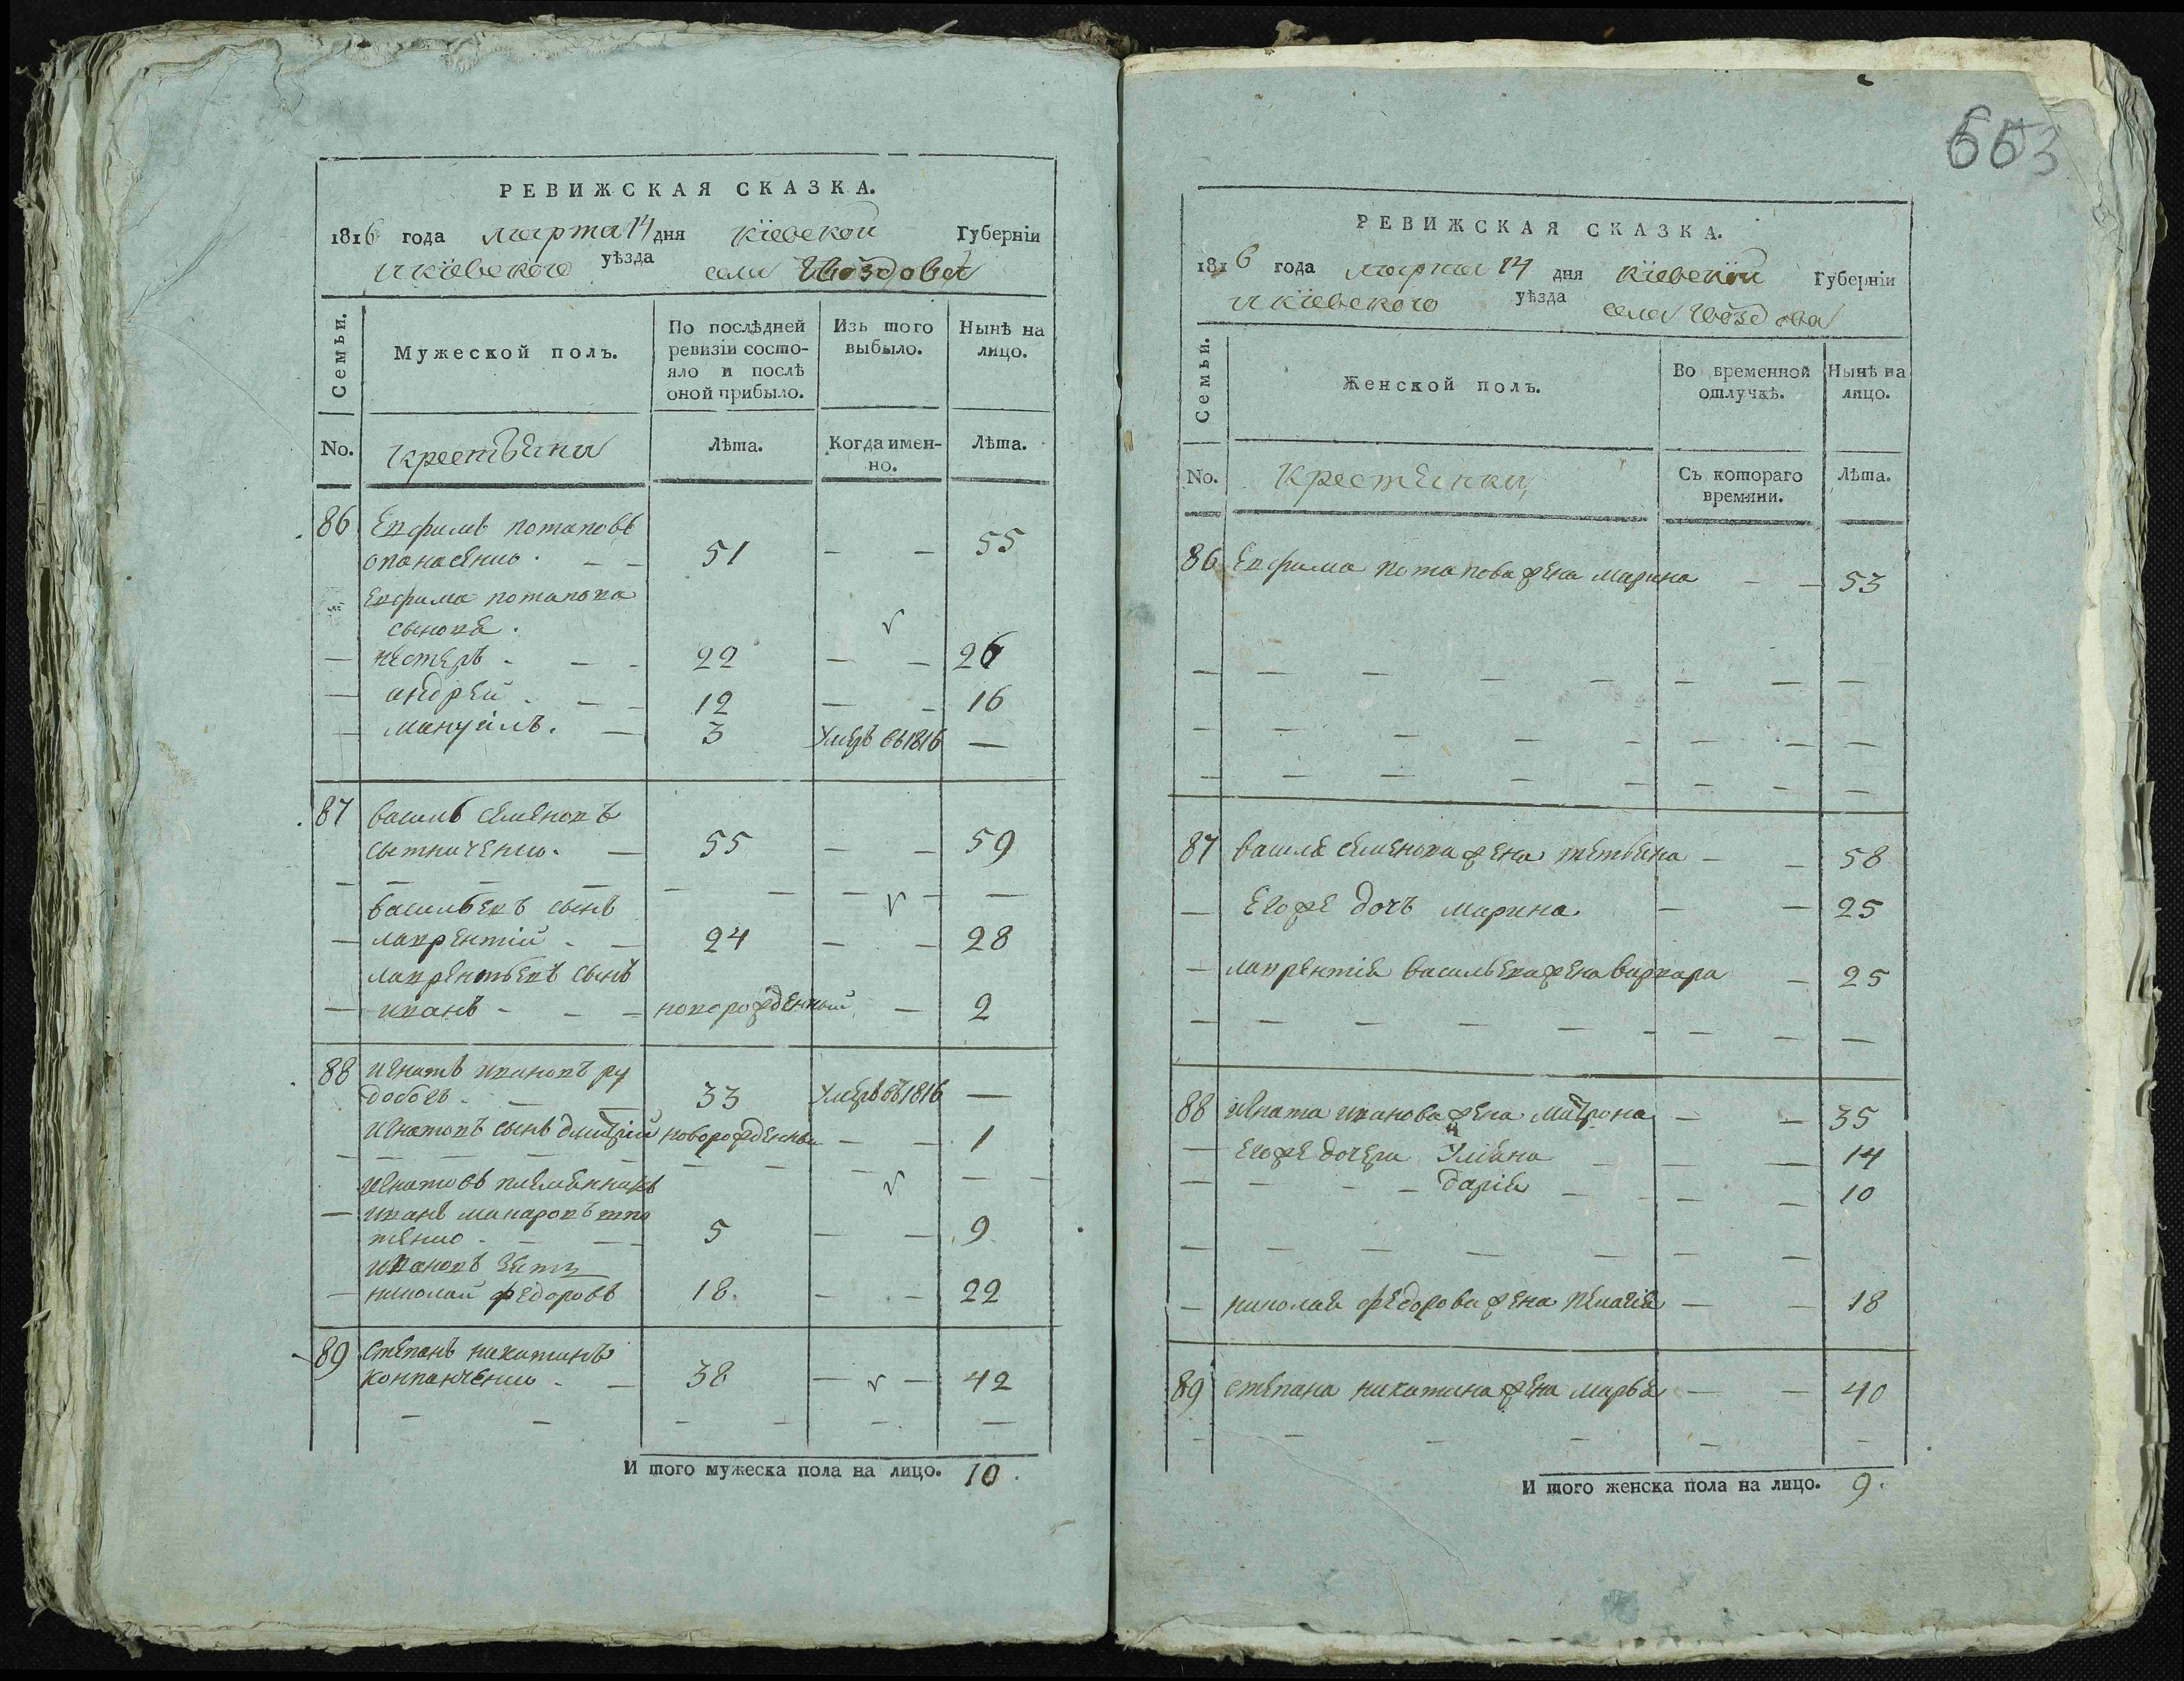 РЕВИЖСКАЯ СКАЗКА.
1816 года марта 14 дня кіевской Губерніи
и кіевского уѣзда села Гвоздова
Семьи.
Мужеской полъ.
По послѣдней ревизіи состояло и послѣ оной прибыло.
Изъ того выбыло.
Нынѣ на лицо.
No. крестьяни Лѣта. Когда именно. Лѣта.
86 Евфимъ потаповъ
опанасенко - - 51 - - 55
Евфима потапова
сыновя.
— нестеръ - - - 22 - - 26
— андрей - - - 12 - - 16
— мануилъ. - 3 Умеръ въ 1816 —
87 василь семеновъ
сытниченко. - 55 - - 59
васильевъ сынъ
— лаврентій - - 24 - - 28
лаврентьевъ сынъ
— иванъ - - - новорожденный - 2
88 игнатъ ивановъ ру
добогъ - - 33 Умеръ въ 1816 —
игнатовъ сынъ дмитрій новорожденны - - 1
игнатовъ племянникъ
— иванъ макаровъ
5 - - 9
ивановъ зять
— николай федоровъ 18. - - 22
89 степанъ никитинъ
конпанченко - - 38 - - 42
И того мужеска пола на лицо. 10.
663
РЕВИЖСКАЯ СКАЗКА.
1816 года марта 14 дня кіевской Губерніи
и кіевского уѣзда села Гвоздова
Семьи.
Женской полъ.
Во временной отлучкѣ.
Нынѣ на лицо.
No. Крестянки Съ котораго времяни. Лѣта.
86 Евфима потапова жена марина - - 53
87 василя семенова жена татьяна - - 58
— Егоже дочъ марина - - 25
— лаврентія васильева жена варвара - 25
88 игната иванова жена матрона - - 35
— Егоже дочери Уліяна - - - 14
— - - - дарія - - - 10
— николая федорова жена пелагія - - 18
89 степана никитина жена марья - - 40
И того женска пола на лицо. 9.